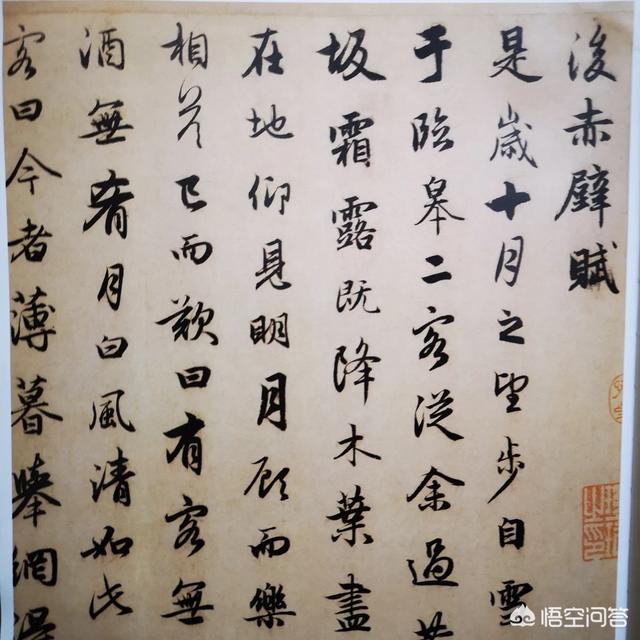 後赤壁賦
是歲十月之望步自雪
于臨皋二客從余過黃
坂霜露既降木葉盡
在地仰見明月顧而樂
相答已而歎曰有客無
酒無肴月白風清如此
客曰今者薄暮舉網得
悟空问答